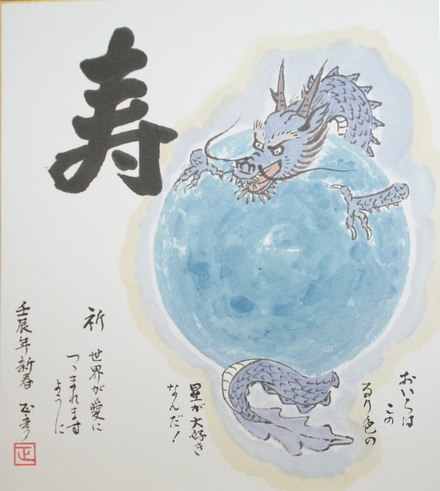 寿
おいらは
この
るり色の
星が大好き
なんだ！
祈
世界が愛に
つゝまれます
ように
壬辰年新春
正